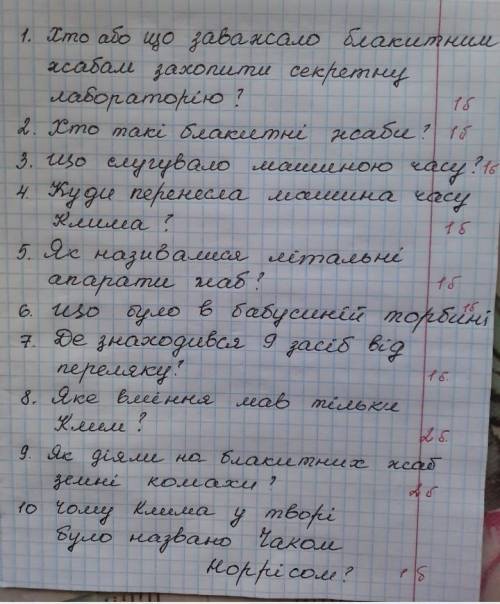 1. Хто або що заважало блакитним
жабам захопити секретну
лабораторію? 1б
2. Хто такі блакитні жаби? 1б
3. Що слугувало машиною часу? 1б
4. Куди перенесла машина часу
Клима? 1б
5. Як називалися літальні
апарати жаб? 1б
6. Що було в бабусиній торбині 1б
7. Де знаходився 9 засіб від
переляку? 1б.
8. Яке вміння мав тільки
Клим? 2б.
9. Як діяли на блакитних жаб
земні комахи? 2б
10 Чому Клима у творі
було названо Чаком
Норрісом? 1б